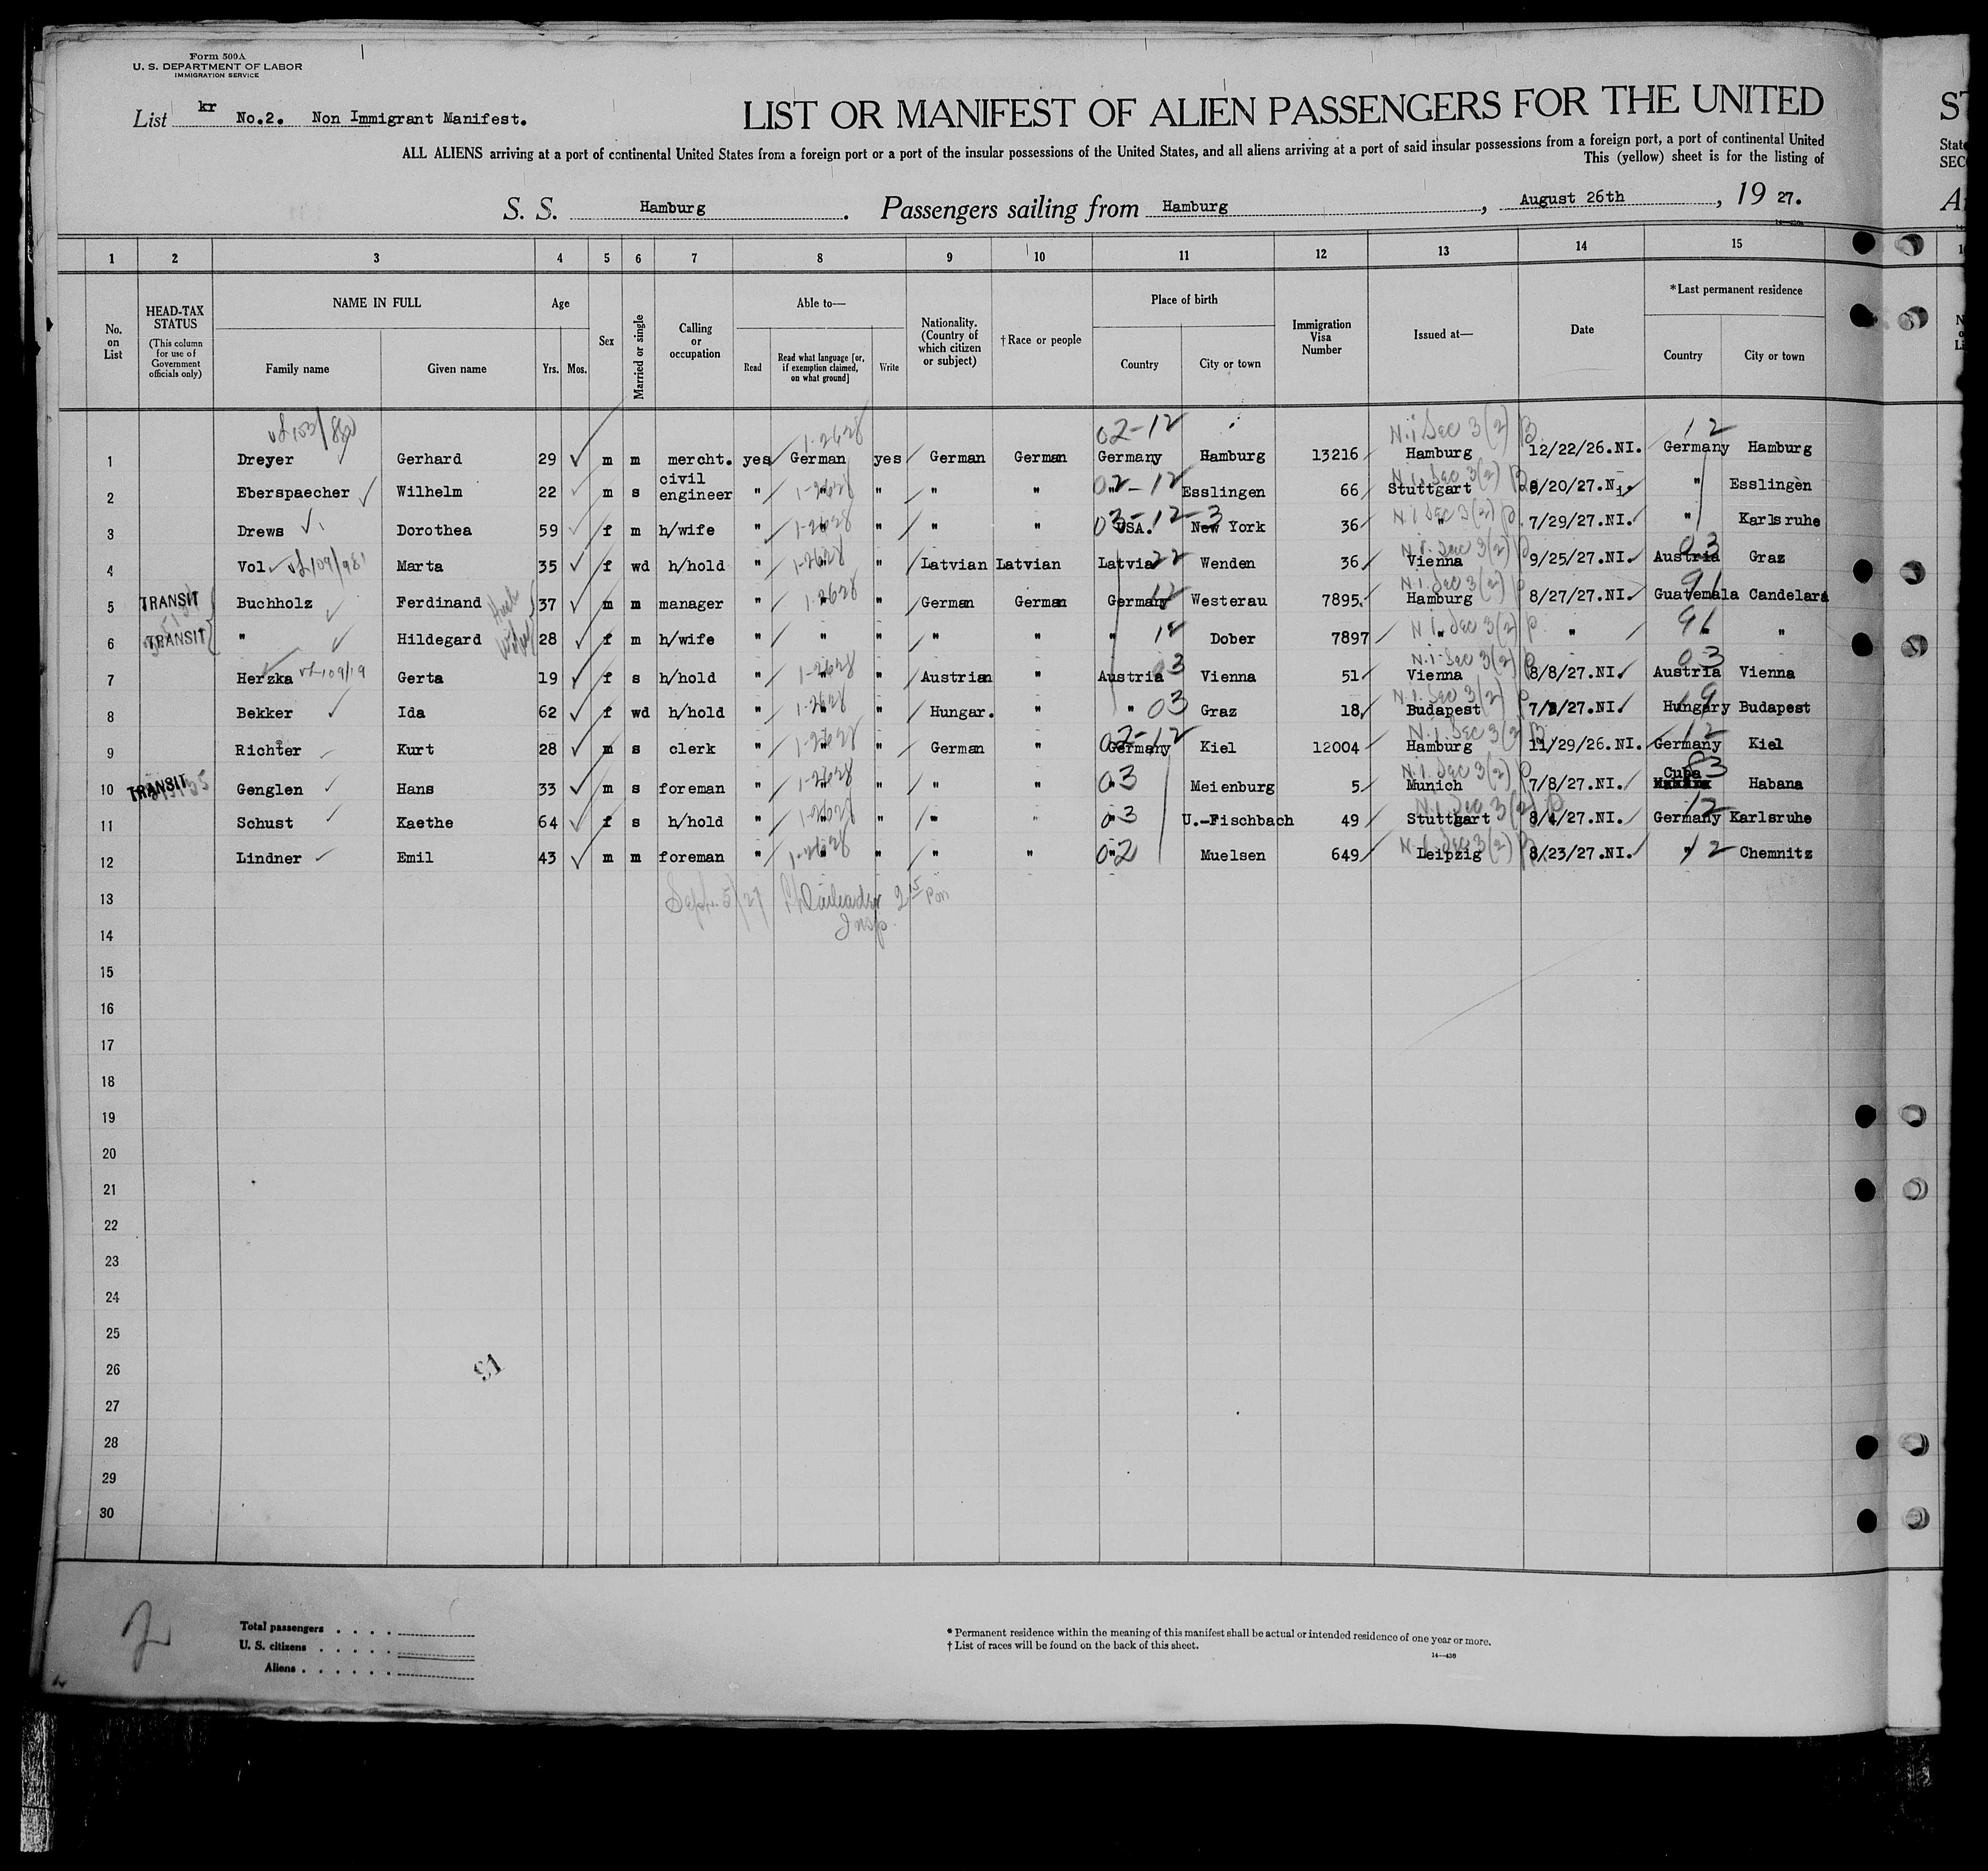 Form 500A
U. S. DEPARTMENT OF LABOR
IMMIGRATION SERVICE
List kr No.2. Non Immigrant Manifest.
LIST OR MANIFEST OF ALIEN PASSENGERS FOR THE UNITED
ALL ALIENS arriving at a port of continental United States from a foreign port or a port of the insular possessions of the United States, and all aliens arriving at a port of said insular possessions from a foreign port, a port of continental United
This (yellow) sheet is for the listing of
S. S. Hamburg. Passengers sailing from Hamburg, August 26th, 19 27.
1 2 3 4 5 6 7 8 9 10 11 12 13 14 15
No. on List
HEAD-TAX STATUS
(This column for use of Government officials only)
NAME IN FULL
Family name Given name
Age
Yrs. Mos.
Sex
Married or single
Calling or occupation
Able to—
Read
Read what language [or, if exemption claimed, on what ground]
Write
Nationality. (Country of which citizen or subject)
†Race or people
Place of birth
Country City or town
Immigration Visa Number
Issued at—
Date
*Last permanent residence
Country City or town
02-12 N.i Sec 3(2) B. 12
1 Dreyer Gerhard 29 m m mercht. yes German yes German German Germany Hamburg 13216 Hamburg 12/22/26.NI. Germany Hamburg
2 Eberspaecher Wilhelm 22 m s civil engineer " " " " " " Esslingen 66 Stuttgart 8/20/27.Ni. " Esslingen
3 Drews Dorothea 59 f m h/wife " " " " " USA. New York 36 " 7/29/27.NI. " Karlsruhe
4 Vol Marta 35 f wd h/hold " " " Latvian Latvian Latvia Wenden 36 Vienna 9/25/27.NI. Austria Graz
5 TRANSIT Buchholz Ferdinand 37 m m manager " " " German German Germany Westerau 7895. Hamburg 8/27/27.NI. Guatemala Candelara
6 TRANSIT " Hildegard 28 f m h/wife " " " " " " Dober 7897 " " " "
7 Herzka Gerta 19 f s h/hold " " " Austrian " Austria Vienna 51 Vienna 8/8/27.NI. Austria Vienna
8 Bekker Ida 62 f wd h/hold " " " Hungar. " " Graz 18 Budapest 7/2/27.NI. Hungary Budapest
9 Richter Kurt 28 m s clerk " " " German " Germany Kiel 12004 Hamburg 11/29/26.NI. Germany Kiel
10 TRANSIT Genglen Hans 33 m s foreman " " " " " " Meienburg 5 Munich 7/8/27.NI. Cuba Habana
11 Schust Kaethe 64 f s h/hold " " " " " " U.-Fischbach 49 Stuttgart 8/4/27.NI. Germany Karlsruhe
12 Lindner Emil 43 m m foreman " " " " " " Muelsen 649 Leipzig 8/23/27.NI. " Chemnitz
13 Sept. 5/27
14 Insp.
15
16
17
18
19
20
21
22
23
24
25
26
27
28
29
30
2
Total passengers
U. S. citizens
Aliens
* Permanent residence within the meaning of this manifest shall be actual or intended residence of one year or more.
† List of races will be found on the back of this sheet.